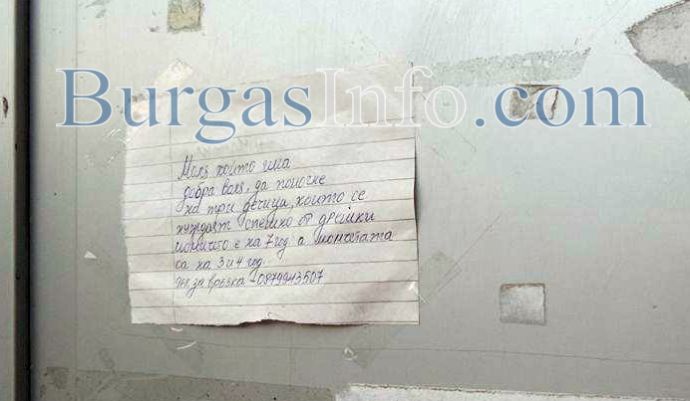 BurgasInfo.com
Моля който има
добра воля, да помогне
на три дечица, които се
нуждаят спешно от дрешки
момичето е на 7 год. а момчетата
са на 3 и 4 год.
за връзка - 0879943507